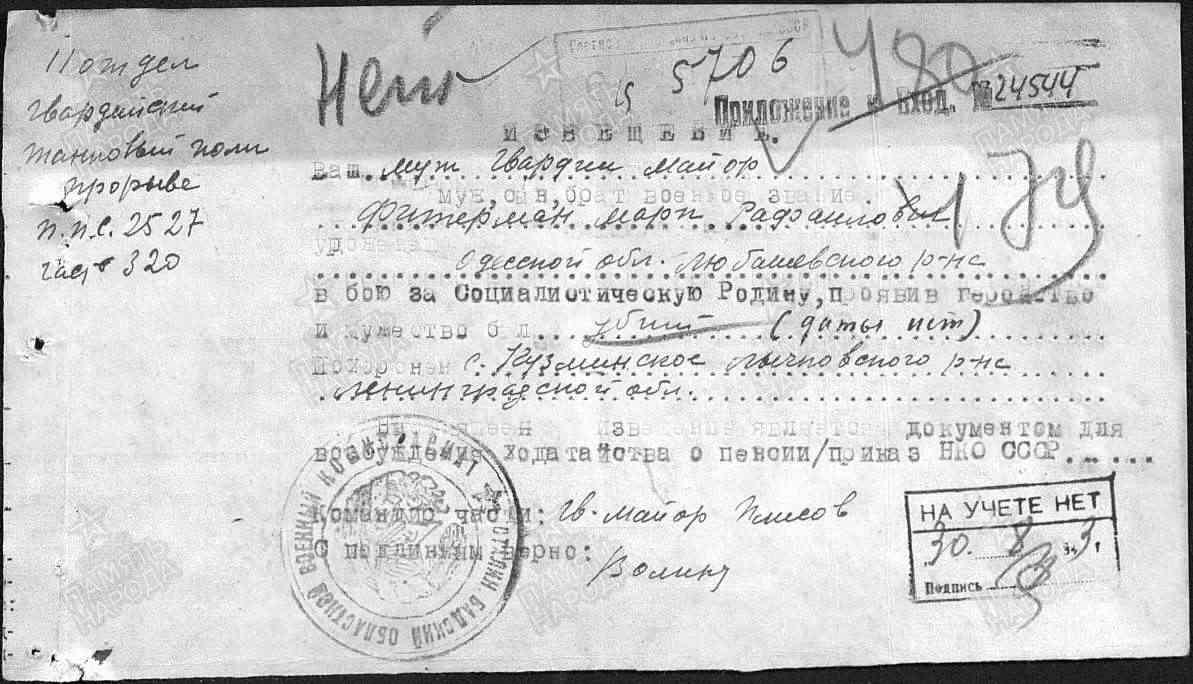 11 отдел
Гвардейский
танковый полк
прорыва
п.п.с. 2527
част 320
Нет
5706
480
Приложение к Вход. № 24544
ИЗВЕЩЕНИЕ.
Ваш муж Гвардии майор
муж, сын, брат военное звание
Фитерман Марк Рафаилович
уроженец
Одесской обл. Любашевского р-на
в бою за Социалистическую Родину, проявив геройство
и мужество был убит (даты нет)
похоронен с. Кузминское Лычковского р-на
Ленинградской обл.
Настоящее Извещение является документом для
возбуждения ходатайства о пенсии/приказ НКО СССР
Командир части: Гв. майор
С подлинным верно:
НА УЧЕТЕ НЕТ
30. 8 43 г
Подпись
СТАЛИНГРАДСКИЙ ОБЛАСТНОЙ ВОЕННЫЙ КОМИССАРИАТ
ПАМЯТЬ НАРОДА